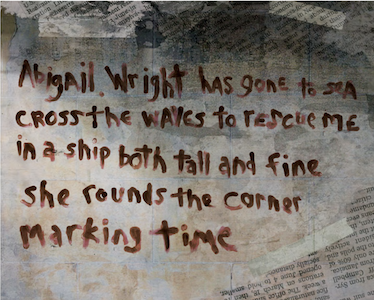 Abigail Wright has gone to sea
cross the waves to rescue me
in a ship both tall and fine
she rounds the corner
marking time